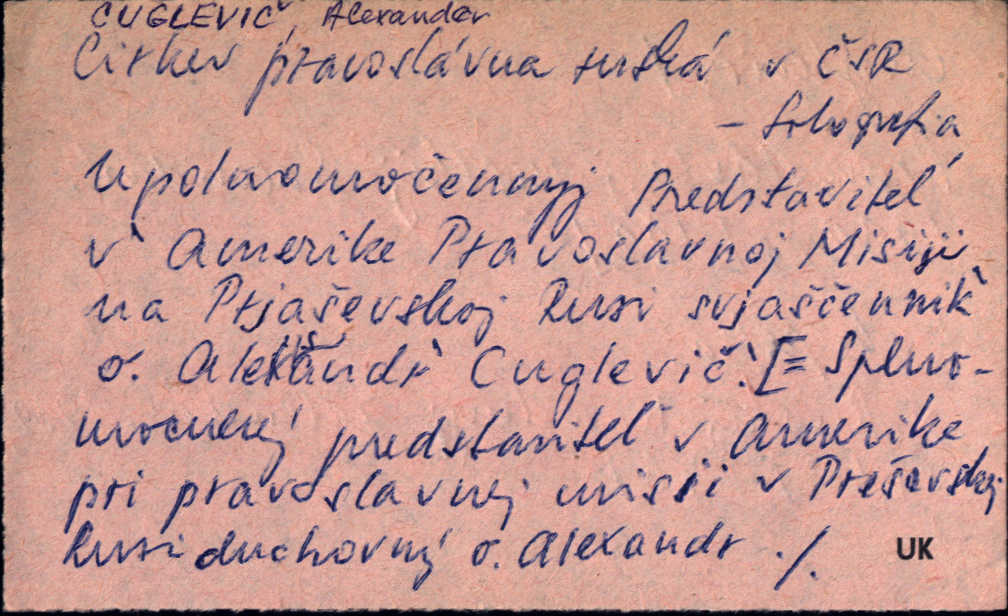 CUGLEVIČ, Alexander
Cirkev pravoslávna ruská v ČSR
– fotografia
Upolnomočennyj Predstavitel'
v' Amerike Pravoslavnoj Misiji
na Prjaševskoj Rusi svjaščennik'
o. Aleksandr' Cuglevič'. [= Splno-
mocnený predstaviteľ v Amerike
pri pravoslavnej misii v Prešovskej
Rusi duchovný o. Alexandr ./.
UK